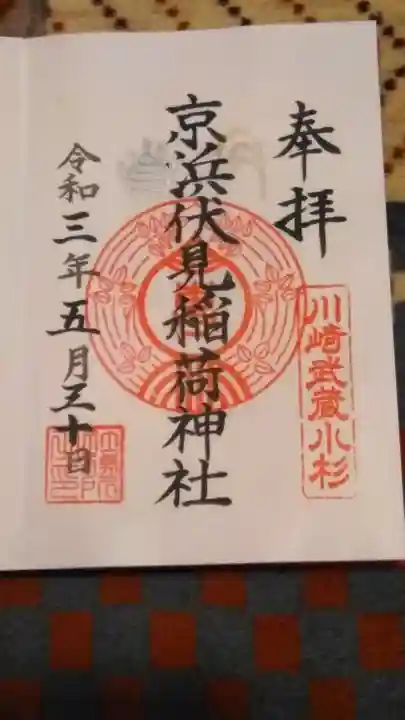 奉拝
川崎武蔵小杉
京浜伏見稲荷神社
令和三年五月三十日